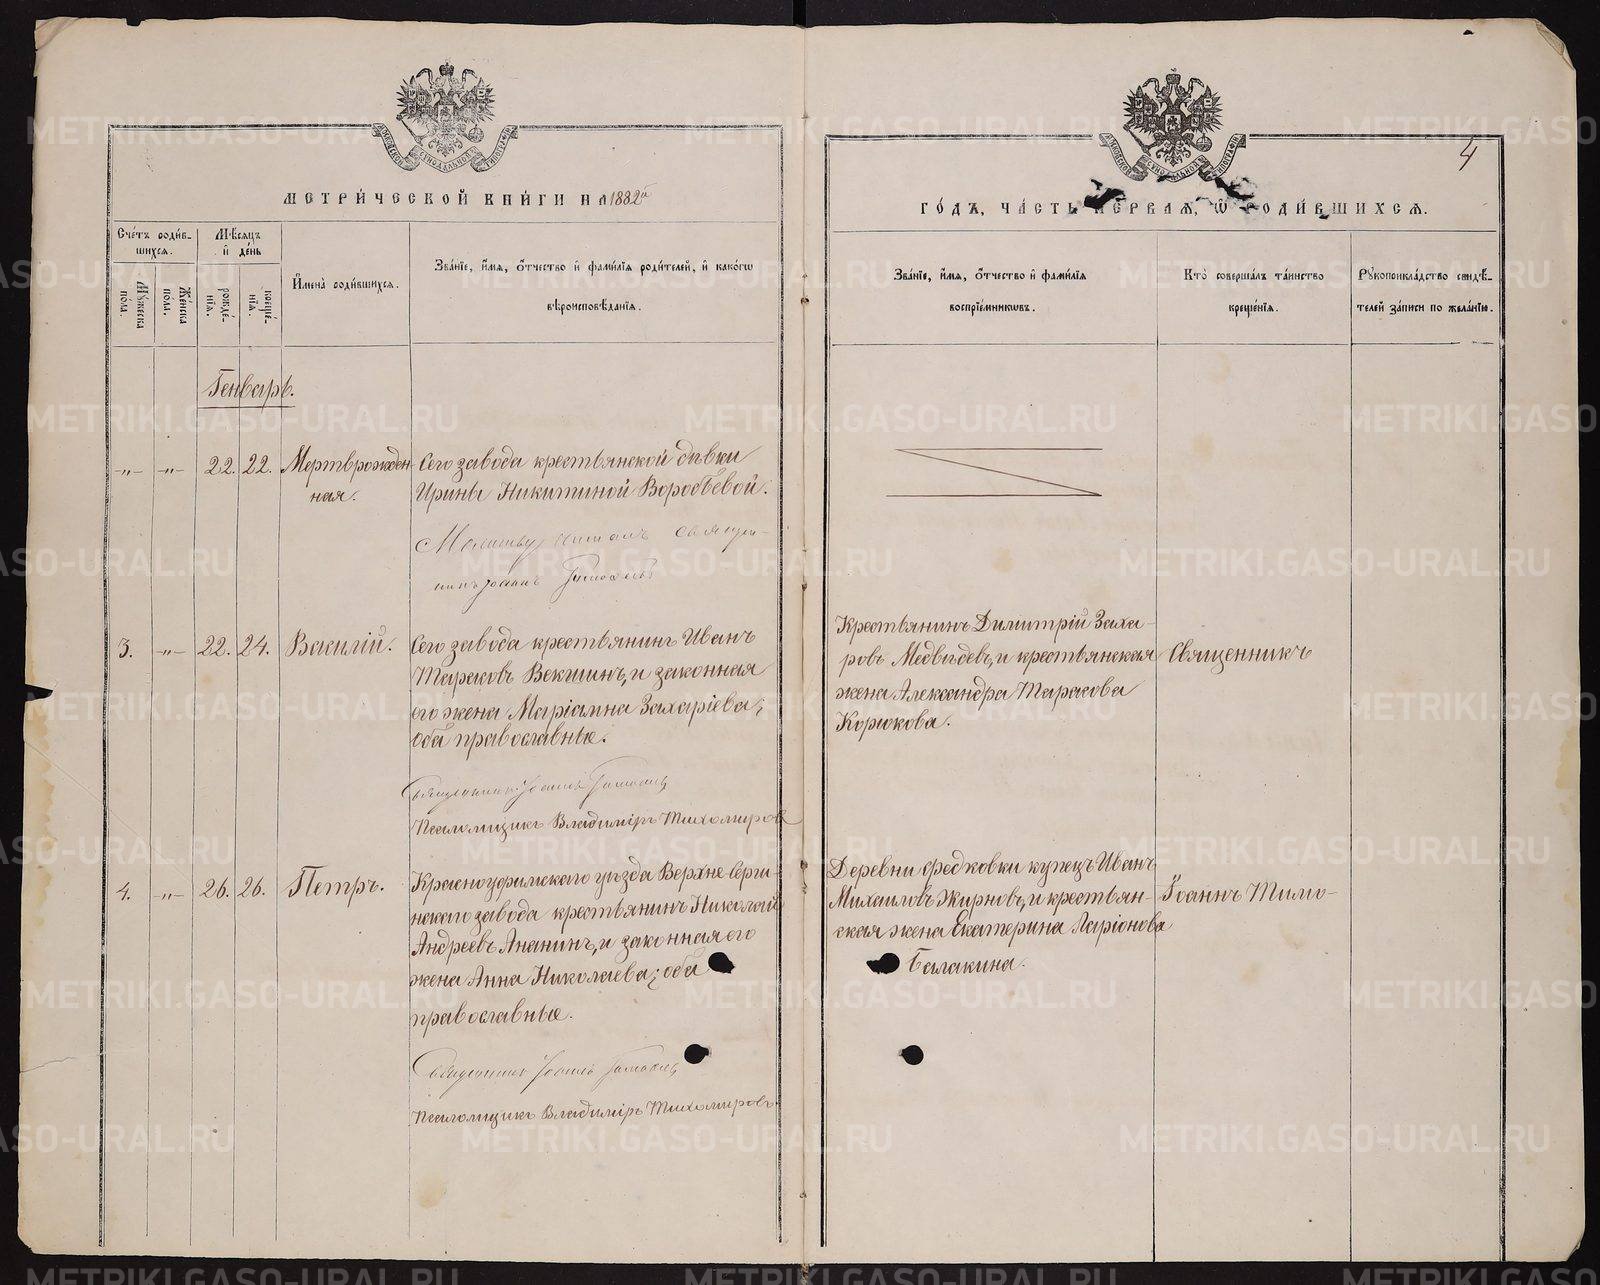 МЕТРИ́ЧЕСКОЙ КНИ́ГИ НА 1882й
Сче́тъ роди́в-
шихся.
Мѣ́сяцъ
и҆ де́нь
Му́жеска
по́ла.
Же́нска
по́ла.
рожде́-
нїѧ.
креще́-
нїѧ.
И҆мена̀ роди́вшихсѧ.
Зва́нїе, и҆́мѧ, ѻ҆́тчество и҆ фами́лїѧ роди́телей, и҆ како́гѡ
вѣроисповѣ́данїѧ.
Генварь.
-"- -"- 22. 22. Мертврожден-
ная.
Сего завода крестьянской дѣвки
Ирины Никитиной Воробьевой.
Молитву читалъ священ-
никъ Іоаннъ
3. -"- 22. 24. Василій.
Сего завода крестьянинъ Иванъ
Тарасовъ Векшинъ, и законная
его жена Маріамна Захаріева;
оба православные.
Священникъ Іоаннъ
Псаломщикъ Владиміръ Тихомировъ
4. -"- 26. 26. Петръ.
Красноуфимскаго уѣзда Верхне-Серги-
нскаго завода крестьянинъ Николай
Андреевъ Ананинъ, и законная его
жена Анна Николаева; оба
православные.
Священникъ Іоаннъ
Псаломщикъ Владиміръ Тихомировъ
4
ГО́ДЪ, ЧА́СТЬ ПЕ́РВАѦ, Ѡ҆ РОДИ́ВШИХСѦ.
Зва́нїе, и҆́мѧ, ѻ҆́тчество и҆ фами́лїѧ
воспрїе́мникѡвъ.
Кто̀ соверша́лъ та́инство
креще́нїѧ.
Рꙋкоприкла́дство свидѣ́-
телей за́писи по жела́нїю.
Крестьянинъ Димитрій Заха-
ровъ Медвѣдевъ, и крестьянская
жена Александра Тарасова
Корюкова.
Священникъ
Деревни Федковки купецъ Иванъ
Михаиловъ Жирновъ, и крестьян-
ская жена Екатерина Ларіонова
Балакина.
Іоаннъ Тимо-
METRIKI.GASO-URAL.RU